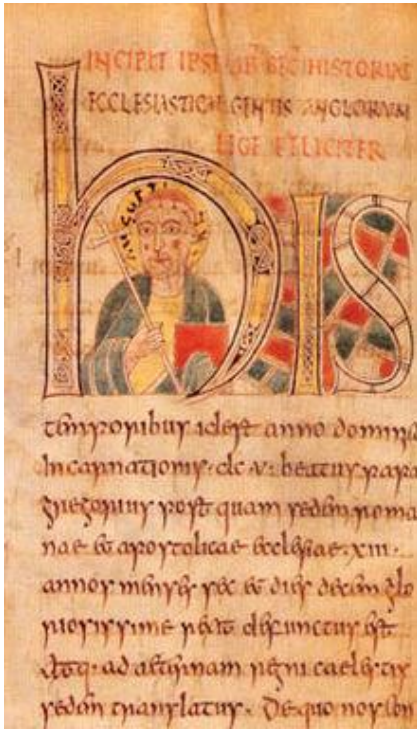 INCIPIT HISTORIAE
ECCLESIASTICAE GENTIS ANGLORUM
LEGE FELICITER
AUGUSTINUS
his
temporibus id est anno dominicae
incarnationis · dc v · beatus papa
gregorius post quam sedem roma
nae et apostolicae ecclesiae · xiii ·
annos menses sex et dies decem glo
riosissime rexit defunctus est
Atq· ad aeternam regni caelestis
sedem translatus · De quo nos con